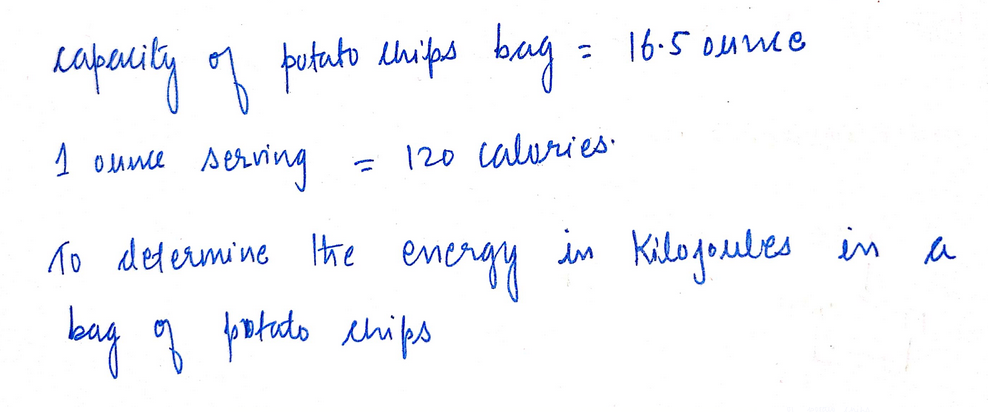 capacity of potato chips bag = 16.5 ounce
1 ounce serving = 120 calories.
To determine the energy in Kilojoules in a
bag of potato chips